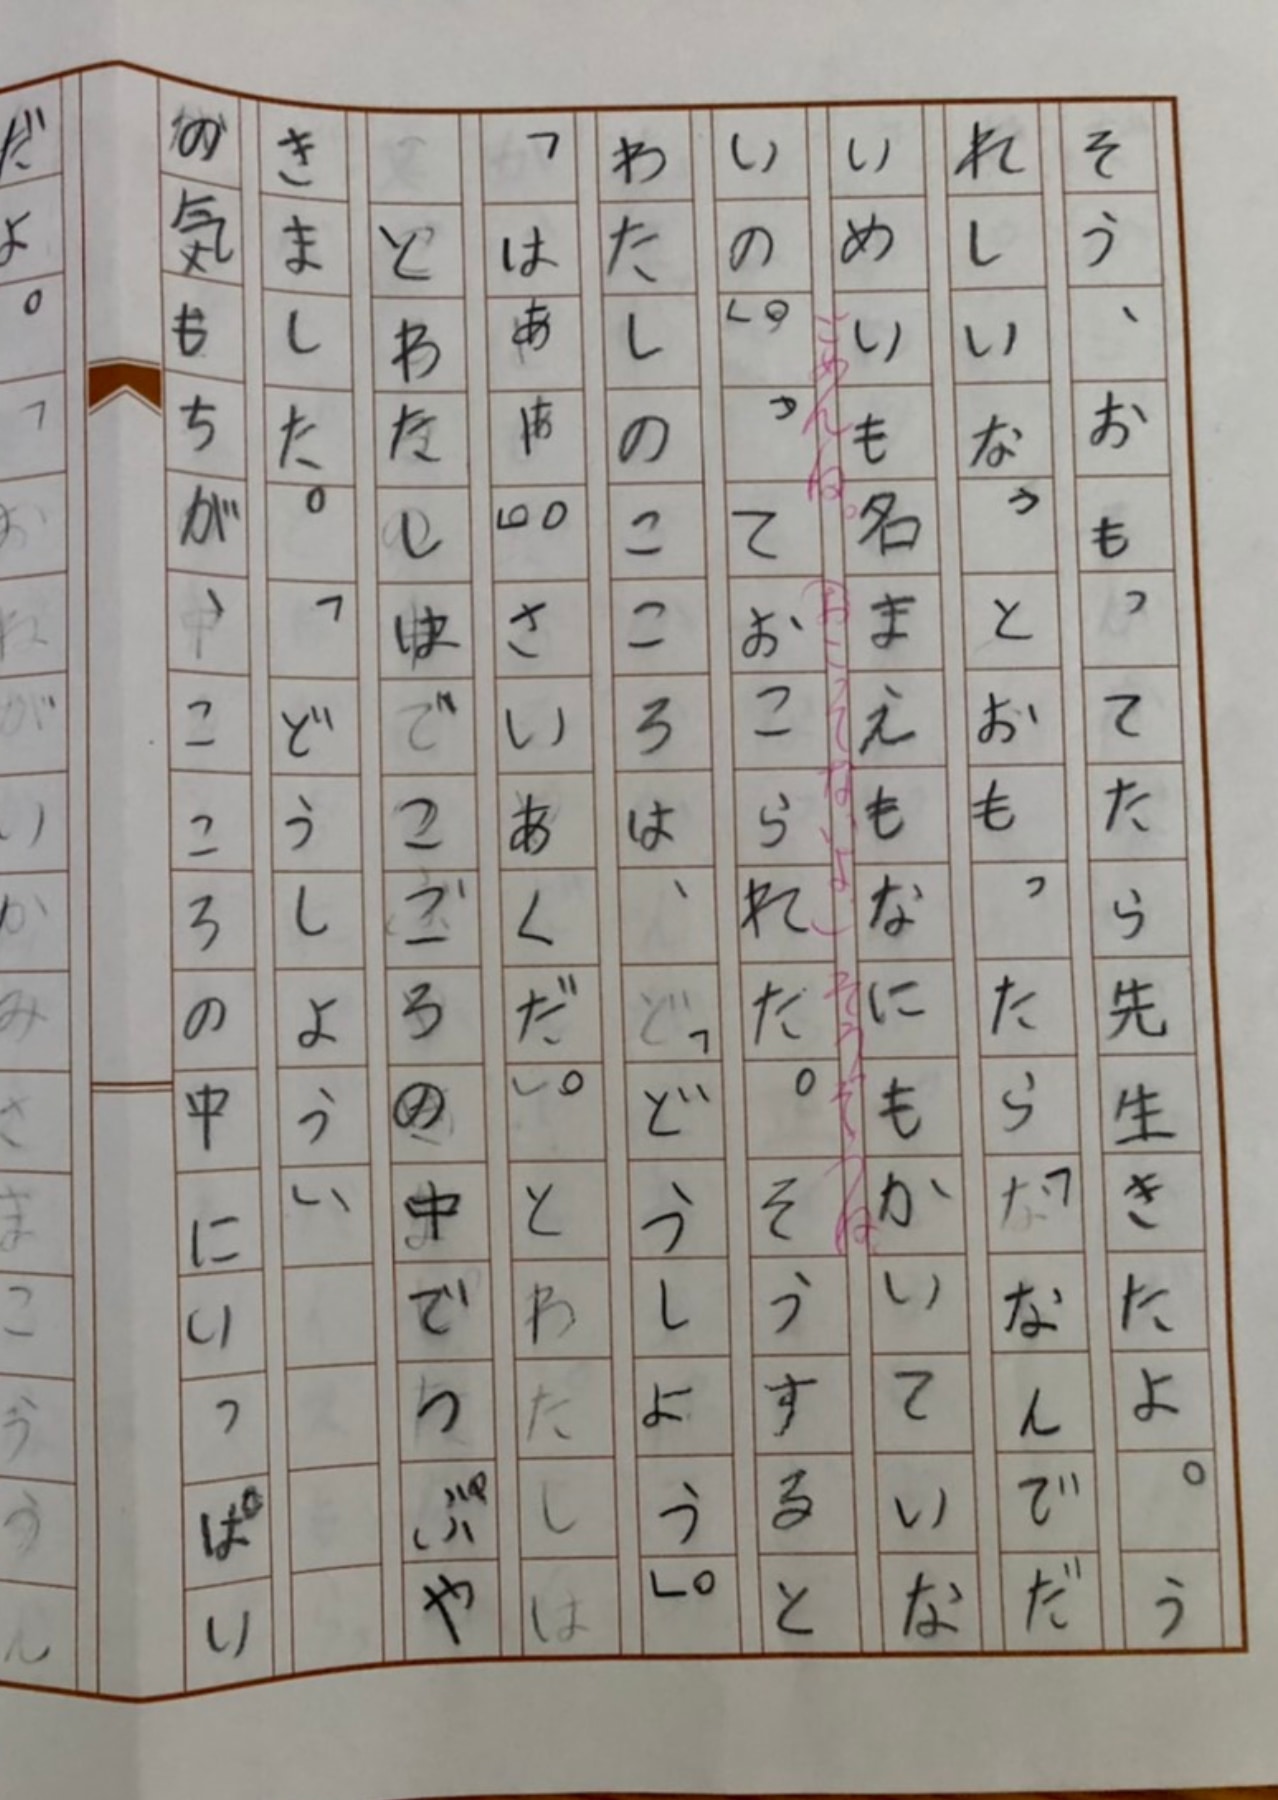 そう、おもってたら先生きたよ。う
れしいなっとおもったら「なんでだ
いめいも名まえもなにもかいていな
ごめんね。(おこってないよ)そうぞうね
いの」。っておこられた。そうすると
わたしのこころは、「どうしよう」。
「はあぁ」。さいあくだ」。とわたしは
とわたしはでこごろの中でつぶや
きました。「どうしようい
の気もちが、こころの中にいっぱい
だよ。「おねがいかみさまこううん